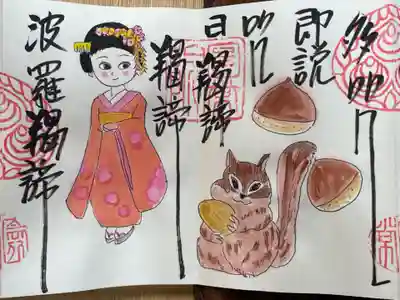 多呪
即説
呪
曰羯諦
羯諦
波羅羯諦